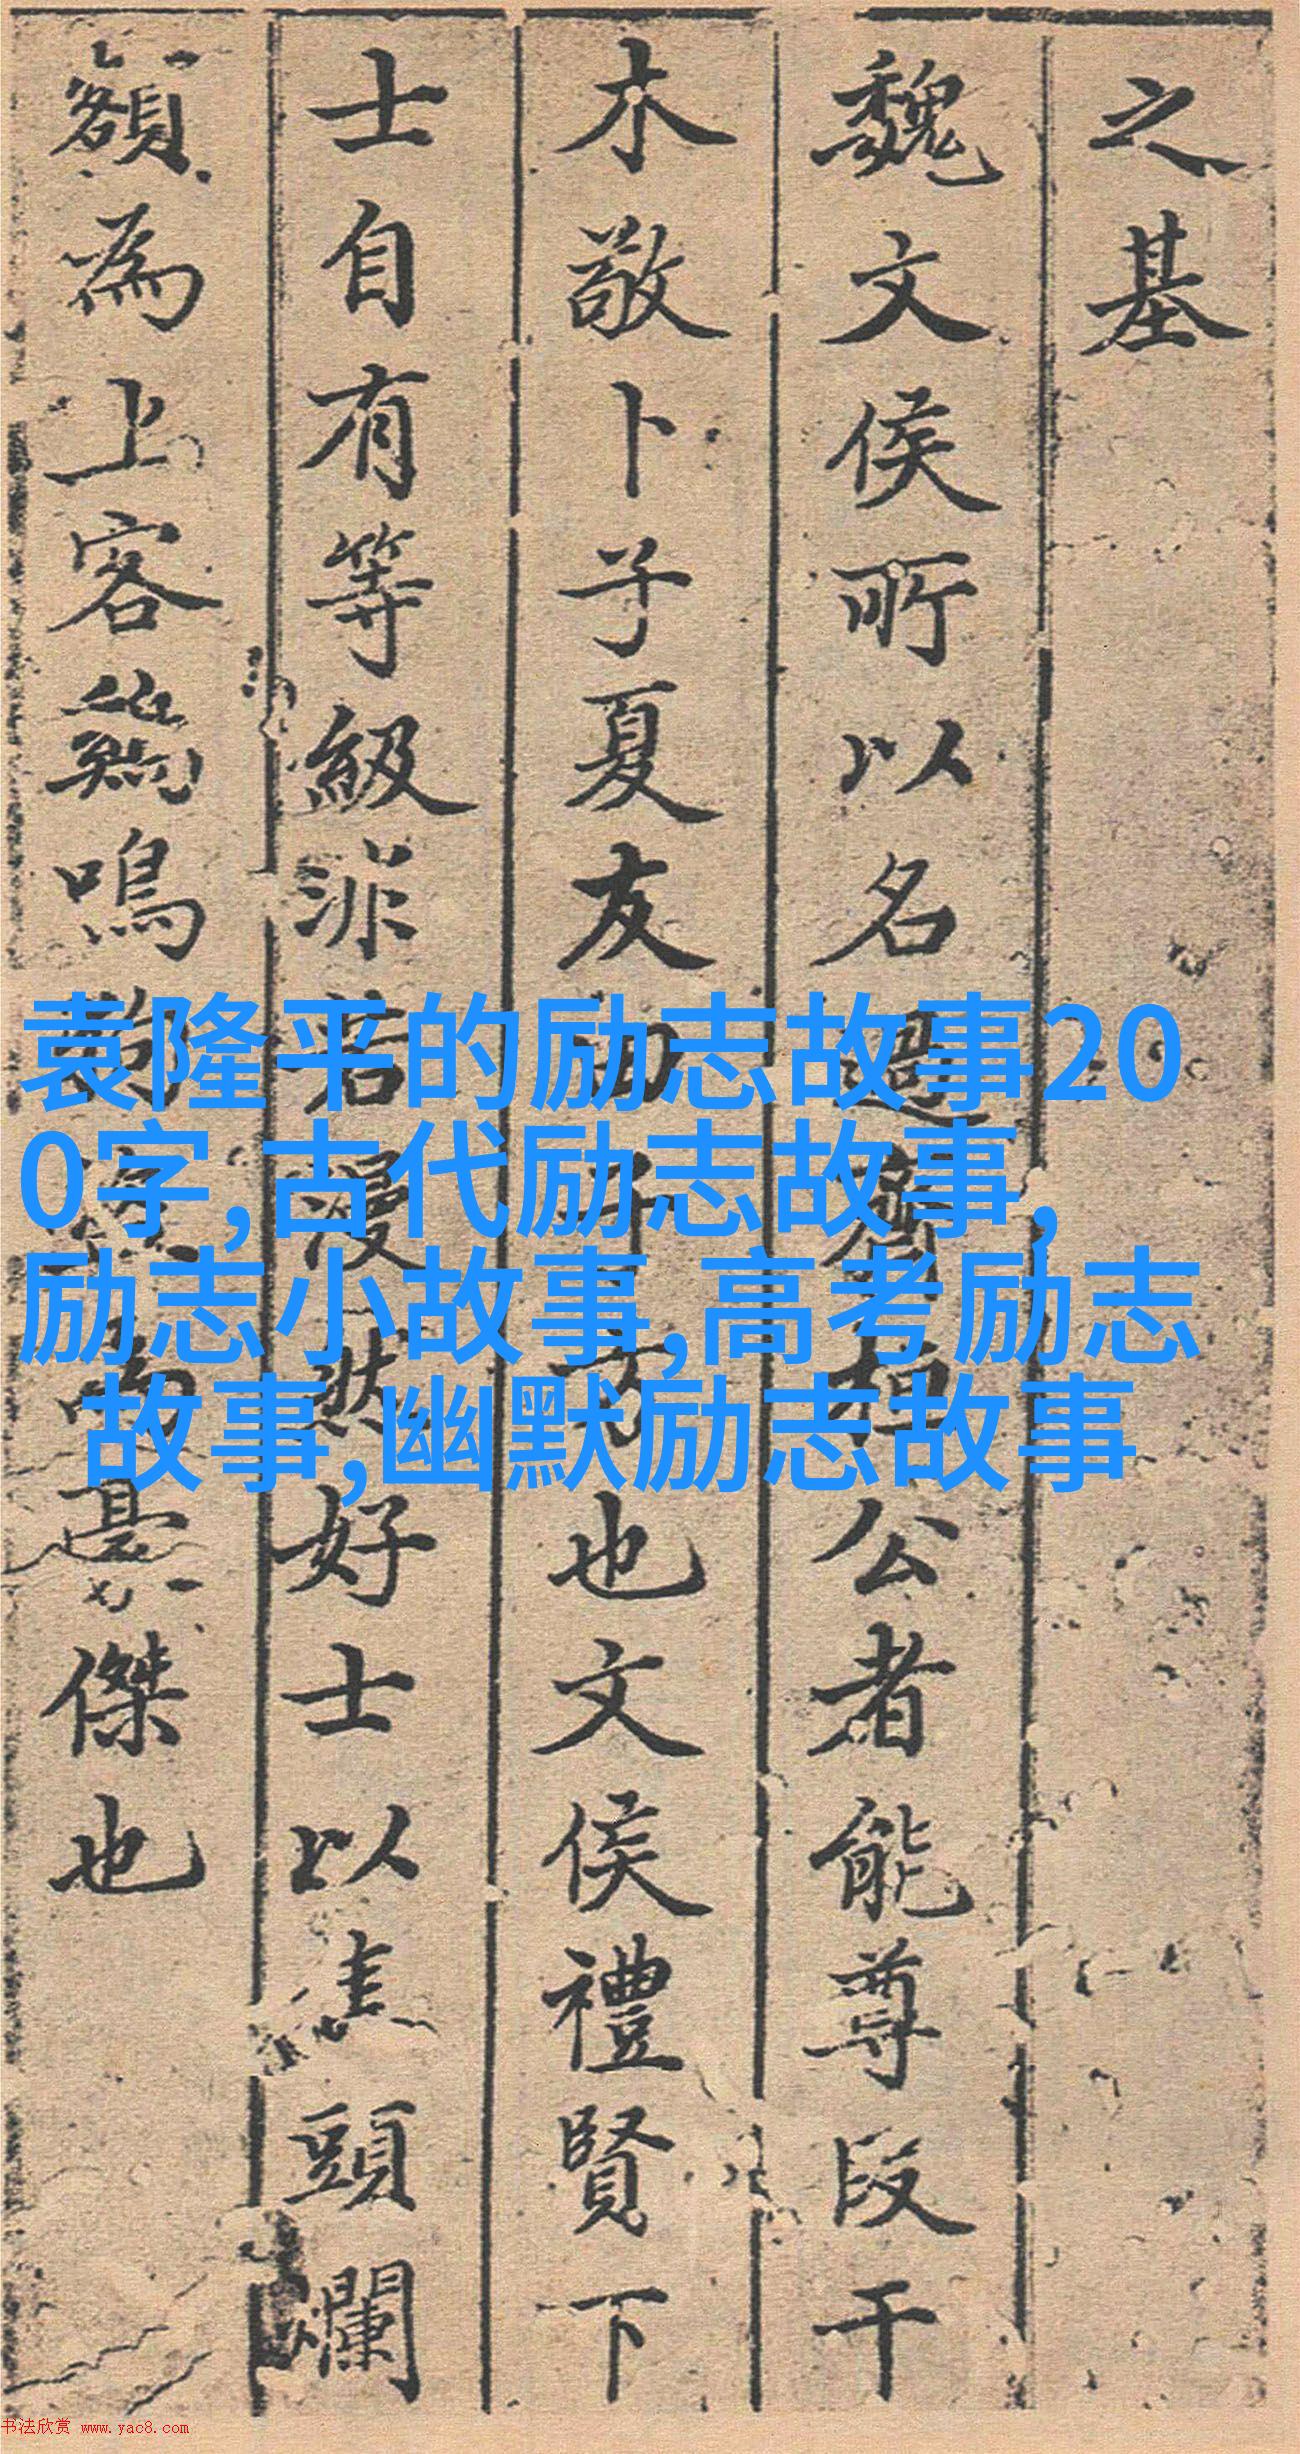 之基
魏文侯所以名過齊桓公者能尊段干
木敬卜子夏友田子方也文侯禮賢下
士自有等級非若漫然好士以焦頭爛
額為上客鷄鳴狗豪傑也
袁隆平的励志故事20
0字,古代励志故事,
励志小故事,高考励志
故事,幽默励志故事
书法欣赏 www.yac8.com